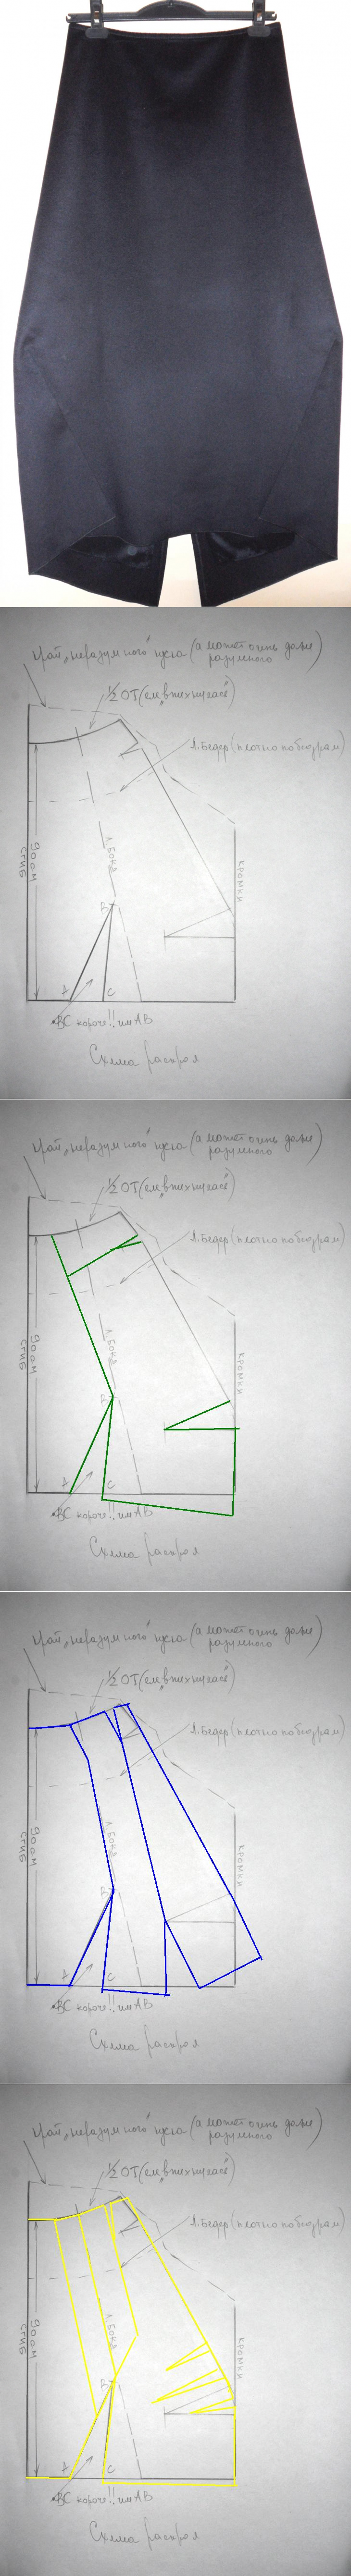 Край „неразумного" куска (а может очень даже
разумного)
½ ОТ (ем, в них щегася)
Л. Бедер (плотно по бедрам)
Л. БОКА
КРОМКИ
90 см
СГИБ
Д
А
С
ВС короче!!, чем АВ
Схема раскроя
Край „неразумного" куска (а может очень даже
разумного)
½ ОТ
Л. Бедер (плотно по бедрам)
Л. БОКА
КРОМКИ
90 см
СГИБ
Д
А
С
ВС короче!!, чем АВ
Схема раскроя
Край „неразумного" куска (а может очень даже
разумного)
½ ОТ
Л. Бедер (плотно по бедрам)
Л. БОКА
КРОМКИ
90 см
СГИБ
Д
А
С
ВС короче!!, чем АВ
Схема раскроя
Край „неразумного" куска (а может очень даже
разумного)
½ ОТ
Л. Бедер (плотно по бедрам)
Л. БОКА
КРОМКИ
90 см
СГИБ
Д
А
С
ВС короче!!, чем АВ
Схема раскроя